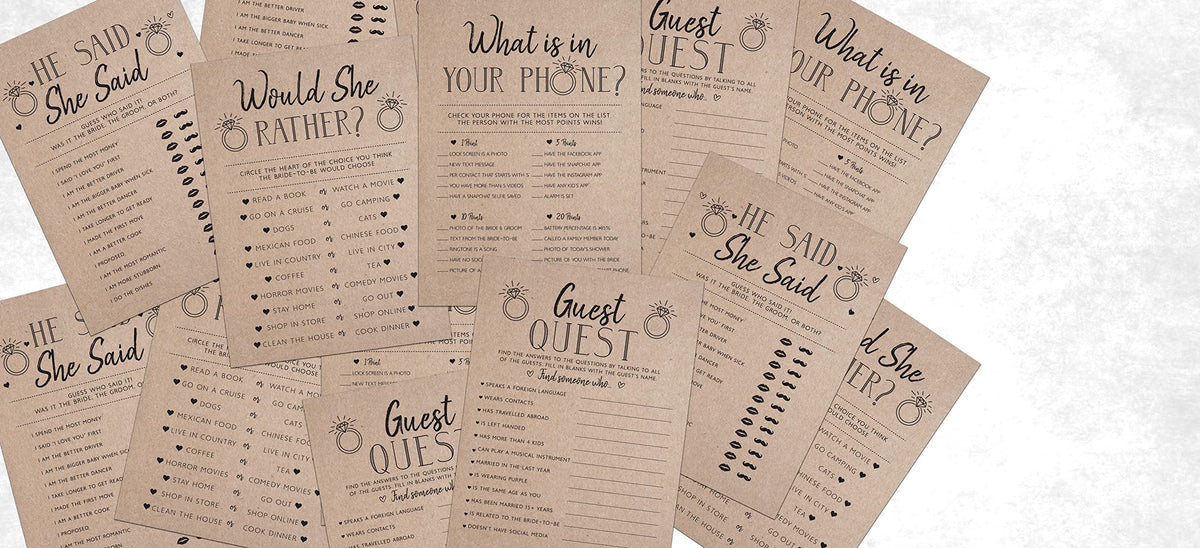 HE SAID
She Said
GUESS WHO SAID IT!
WAS IT THE BRIDE, THE GROOM, OR BOTH?
I SPEND THE MOST MONEY
I SAID "I LOVE YOU" FIRST
I AM THE BETTER DRIVER
I AM THE BIGGER BABY WHEN SICK
I AM THE BETTER DANCER
I TAKE LONGER TO GET READY
I MADE THE FIRST MOVE
I AM A BETTER COOK
I PROPOSED
I AM THE MOST ROMANTIC
I AM MORE STUBBORN
I DO THE DISHES
I AM THE BETTER DRIVER
I AM THE BIGGER BABY WHEN SICK
I AM THE BETTER DANCER
I TAKE LONGER TO GET
I MADE
Would She
RATHER?
CIRCLE THE HEART OF THE CHOICE YOU THINK
THE BRIDE-TO-BE WOULD CHOOSE
READ A BOOK or WATCH A MOVIE
GO ON A CRUISE or GO CAMPING
DOGS or CATS
MEXICAN FOOD or CHINESE FOOD
LIVE IN COUNTRY or LIVE IN CITY
COFFEE or TEA
HORROR MOVIES or COMEDY MOVIES
STAY HOME or GO OUT
SHOP IN STORE or SHOP ONLINE
CLEAN THE HOUSE or COOK DINNER
What is in
YOUR PHONE?
CHECK YOUR PHONE FOR THE ITEMS ON THE LIST.
THE PERSON WITH THE MOST POINTS WINS!
1 Point
LOCK SCREEN IS A PHOTO
NEW TEXT MESSAGE
PER CONTACT THAT STARTS WITH S
YOU HAVE MORE THAN 5 VIDEOS
HAVE A SNAPCHAT SELFIE SAVED
5 Points
HAVE THE FACEBOOK APP
HAVE THE SNAPCHAT APP
HAVE THE INSTAGRAM APP
HAVE ANY KID'S APP
ALARM IS SET
10 Points
PHOTO OF THE BRIDE & GROOM
TEXT FROM THE BRIDE-TO-BE
RINGTONE IS A SONG
HAVE NO
PICTURE OF A
20 Points
BATTERY PERCENTAGE IS
CALLED A FAMILY MEMBER TODAY
PHOTO OF TODAY'S SHOWER
PICTURE OF YOU WITH THE BRIDE
PHONE
Guest
QUEST
TO THE QUESTIONS BY TALKING TO ALL
FILL IN BLANKS WITH THE GUEST'S NAME.
Find someone who...
LANGUAGE
INSTRUMENT
What is in
OUR PHONE?
YOUR PHONE FOR THE ITEMS ON THE LIST.
PERSON WITH THE MOST POINTS WINS!
5 Points
HAVE THE FACEBOOK APP
HAVE THE SNAPCHAT APP
HAVE THE INSTAGRAM APP
HAVE ANY KID'S APP
HE SAID
She Said
GUESS WHO SAID IT!
WAS IT THE BRIDE, THE GROOM, OR BOTH?
MONEY
YOU" FIRST
DRIVER
BABY WHEN SICK
DANCER
GET READY
MOVE
COOK
ROMANTIC
STUBBORN
DISHES
Guest
QUEST
FIND THE ANSWERS TO THE QUESTIONS BY TALKING TO ALL
OF THE GUESTS. FILL IN BLANKS WITH THE GUEST'S NAME.
Find someone who...
SPEAKS A FOREIGN LANGUAGE
WEARS CONTACTS
HAS TRAVELLED ABROAD
IS LEFT HANDED
HAS MORE THAN 4 KIDS
CAN PLAY A MUSICAL INSTRUMENT
MARRIED IN THE LAST YEAR
IS WEARING PURPLE
IS THE SAME AGE AS YOU
HAS BEEN MARRIED 15+ YEARS
IS RELATED TO THE BRIDE-TO-BE
DOESN'T HAVE SOCIAL MEDIA
HE SAID
She Said
GUESS WHO SAID IT!
WAS IT THE BRIDE, THE GROOM, O
I SPEND THE MOST MONEY
I SAID "I LOVE YOU" FIRST
I AM THE BETTER DRIVER
I AM THE BIGGER BABY WHEN SICK
I AM THE BETTER DANCER
I TAKE LONGER TO GET READY
I MADE THE FIRST MOVE
I AM A BETTER COOK
I PROPOSED
I AM THE MOST ROMANTIC
CIRCLE THE
THE BRIDE
READ A BOOK or WATCH A MO
GO ON A CRUISE or GO CAMP
DOGS or CATS
MEXICAN FOOD or CHINESE FOO
LIVE IN COUNTRY or LIVE IN CITY
COFFEE or TEA
HORROR MOVIES or COMEDY MOVIES
STAY HOME or GO OUT
SHOP IN STORE or SHOP ONLINE
CLEAN THE HOUSE or COOK DINNER
1 Point
LOCK SCREEN IS A PHOTO
NEW TEXT MESSAGE
Guest
QUEST
FIND THE ANSWERS TO THE QUESTIONS
OF THE GUESTS. FILL IN BLANKS
Find someone who
SPEAKS A FOREIGN LANGUAGE
WEARS CONTACTS
HAS TRAVELLED ABROAD
d She
HER?
CHOICE YOU THINK
WOULD CHOOSE
WATCH A MOVIE
GO CAMPING
CATS
CHINESE FOOD
LIVE IN CITY
TEA
COMEDY MOVIES
GO OUT
HORROR MOVIES
STAY HOME
SHOP IN STORE
CLEAN THE HOUSE or